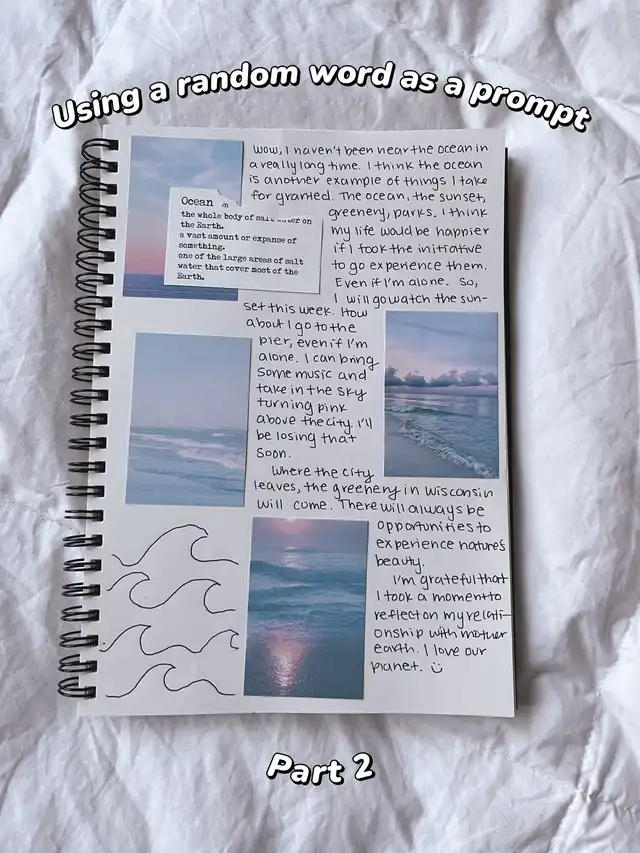 Using a random word as a prompt
Wow, I haven't been near the ocean in
a really long time. I think the ocean
is another example of things I take
for granted. The ocean, the sunset,
greenery, parks. I think
my life would be happier
if I took the initiative
to go experience them.
Even if I'm alone. So,
I will go watch the sun-
set this week. How
about I go to the
pier, even if I'm
alone. I can bring
some music and
take in the sky
turning pink
above the city. I'll
be losing that
soon.
Where the city
leaves, the greenery in Wisconsin
will come. There will always be
opportunities to
experience nature's
beauty.
I'm grateful that
I took a moment to
reflect on my relati-
onship with mother
earth. I love our
planet.
Ocean
the whole body of salt water on
the Earth.
a vast amount or expanse of
something.
one of the large areas of salt
water that cover most of the
Earth.
Part 2